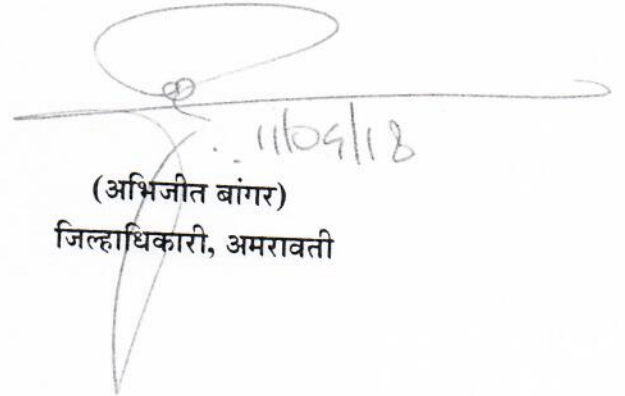 11/09/18
(अभिजीत बांगर)
जिल्हाधिकारी, अमरावती